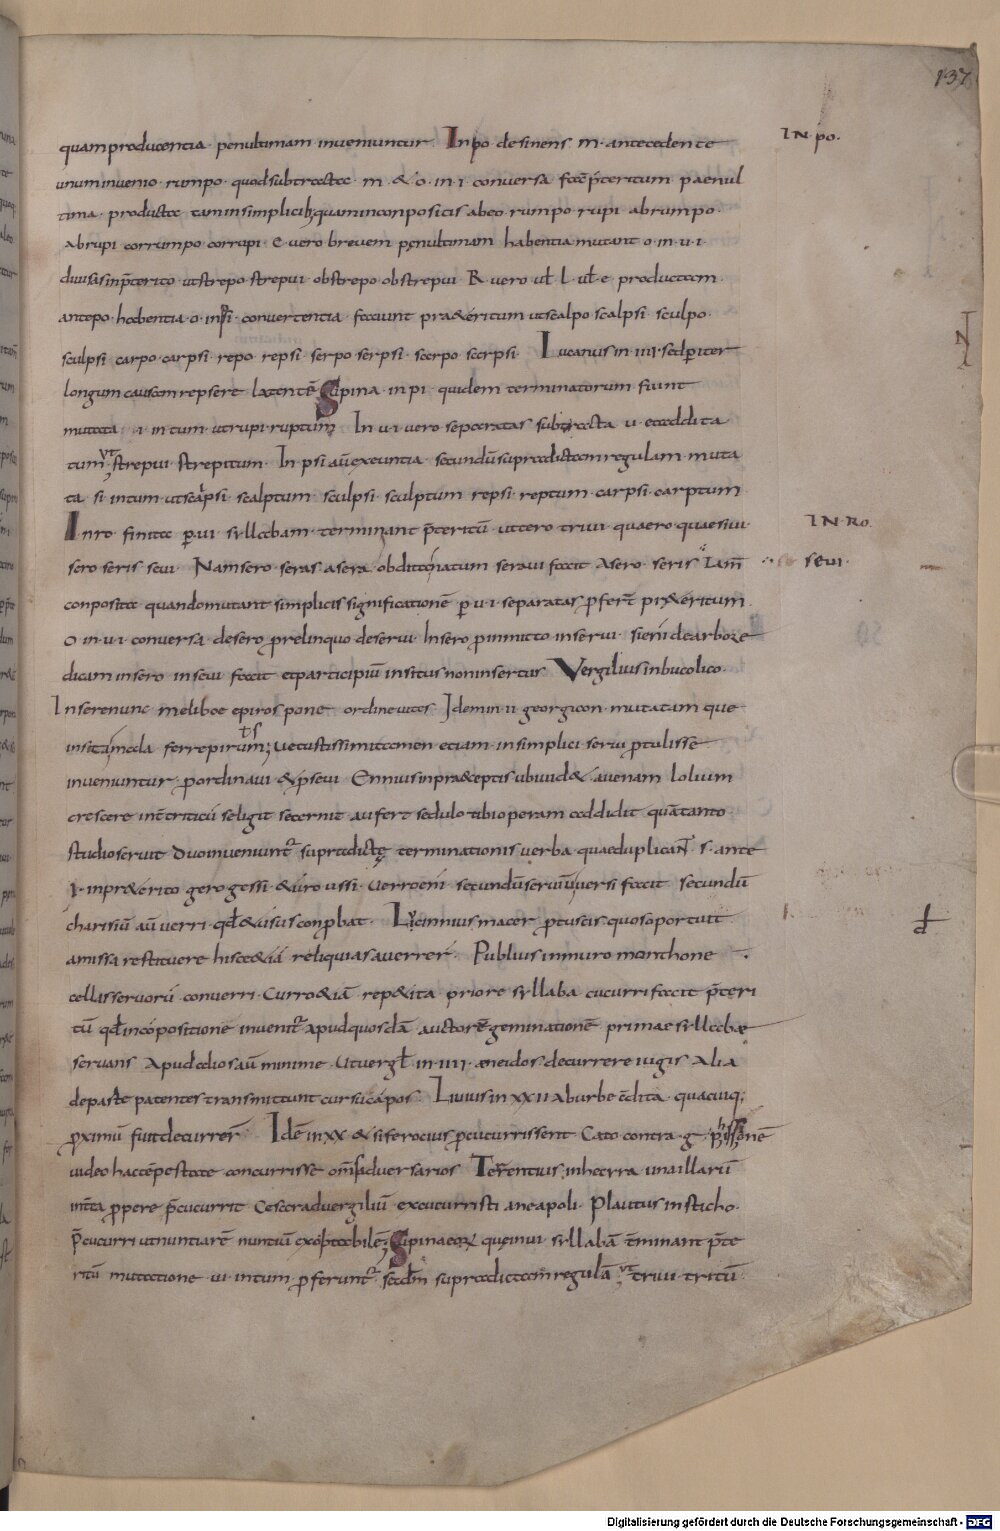 137
quamproducentia · penultimam inveniuntur · Inpo desinens · m · antecedente
IN po.
unum invenio · rumpo · quod subtracta · m · & o · in · i · conversa facit p̄teritum paenul
tima · producta tam in simplicib; quam in conpositis ab eo · rumpo rupi abrumpo ·
abrupi corrumpo corrupi · E vero brevem penultimam habentia mutant o · in · u · i ·
divisas in p̄terito · ut strepo strepui · obstrepo obstrepui R · vero ul̄ · l · ul̄ · e productam ·
ante po · habentia · o · in psi · convertentia · faciunt pra&eritum ut scalpo scalpsi · sculpo ·
sculpsi · carpo · carpsi · repo · repsi · serpo · serpsi · Lucanus in IIII · sed p iter
longum causam repsere latentē Supina · in pi · quidem terminatorum fiunt
mutata · i · in tum · ut rupi · ruptum In · u · i · vero separatas subtracta · u · et addita
tum ut strepui · strepitum · In psi aū exeuntia · secundū supradictam regulam · muta
ta · si · in tum · ut scalpsi · scalptum · sculpsi · sculptum · repsi · reptum · carpsi · carptum
In ro · finita p ui · syllabam · terminant p̄teritū · ut tero · trivi · quaero · quaesivi
IN. RO.
sero seris sevi · Nam sero · seras a sera obditionatum seravi facit A sero · seris
sevi
conposita quando mutant simplicis significationē p u · i · separatas p ferunt pr&eritum
o · in · u · i · conversa desero p relinquo deserui · Insero p inmitto inserui · si enī de arbore
dicam insero insevi facit et participiū insitus non insertus Vergilius in bucolico ·
Insere nunc meliboe epiros pone ordine vites Idem in II georgicon · mutatam que
insita mala ferre pirum; Vetustissimi tamen etiam in simplici serui p tulisse
inveniuntur · p ordinavi & p sevi Ennius in praeceptis ubi vid& avenam lolium
crescere int̄ triticū seligit secernit aufert sedulo tibi operam addidit quā tanto ·
studio seruit Duo inveniunt̄ supradictę terminationis verba quae duplicant̄ · s · ante
· i · in pr&erito gero gessi & uro ussi · Verro enī secundū servium versi facit secundū
charisiū aū verri · qđ & usus conp bat · Lycinnius macer
amissa restituere reliquias averrer · Publius in muro
cellas servorū · converri · Curro & iā rep&ita priore syllaba cucurri facit p̄teri
tū qđ in cōpositione invenit̄ apud quosdā auctorē geminationē primae syllabae
servans Apud alios aū minime · Ut vergl̄ in · IIII · aeneidos · decurrere iugis Alia
de parte patentes transmittunt cursu cāpos · Livius in XXII ab urbe c̄dita · quacuiq;
p ximū fuit decurrer̄ · Idē in XX & si ferocius p cucurrissent · Cato contra
video hac tēpestate concurrisse om̄s adversarios Terentius in hecyra una illarū
int̄ea p pere p̄cucurrit Caesar ad vergiliū excucurristi a neapoli · Plautus in sticho ·
p̄cucurri ut nuntiarē nuntiū exoptabilē; Supina eoꝝ quę in ui syllabā t̄minant p̄te
ritū mutatione ui in tum · p ferunt̄ · scđm supradictam regulā ut trivi · tritū
Digitalisierung gefördert durch die Deutsche Forschungsgemeinschaft - DFG